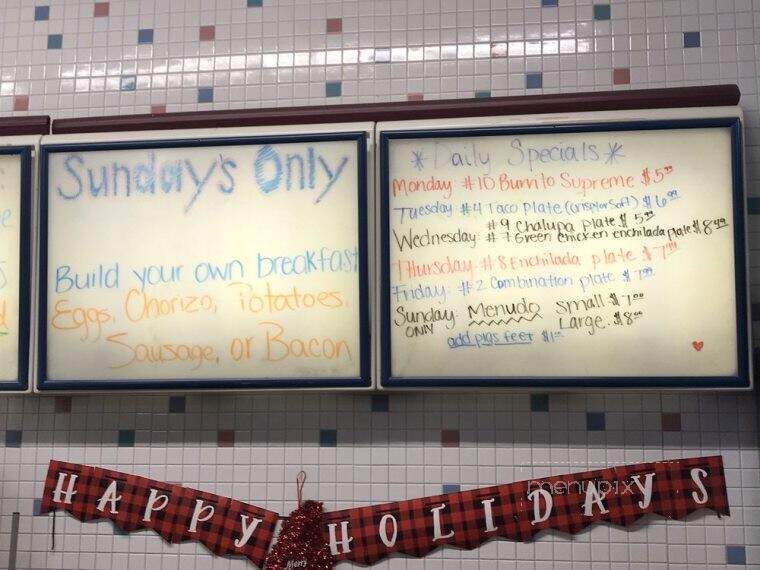 Sunday's Only
Build your own breakfast
Eggs, Chorizo, Potatoes,
Sausage, or Bacon
Daily Specials
Monday #10 Burrito Supreme
Tuesday #4 Taco Plate (crisp or Soft)
#9 Chalupa plate
Wednesday #7 Green chicken enchilada plate
Thursday #8 Enchilada plate
Friday: #2 Combination plate
Sunday: Menudo small
ONLY Large. $8⁰⁰
add pigs feet
HAPPY HOLIDAYS
menupix